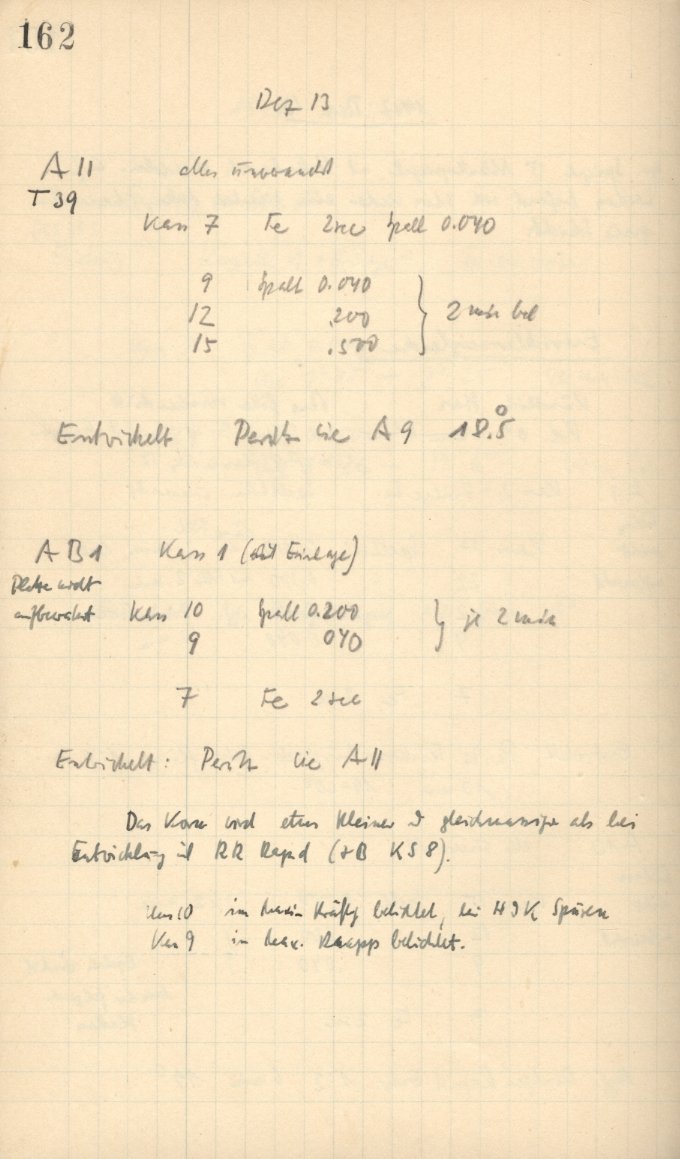 162
Dez 13
A 11 alles
T 39
Kass 7 Fe 2sec Spalt 0.040
9 Spalt 0.040
12 .200 } 2 min bel
15 .500
Entwickelt wie A 9 18.5°
A B 1 Kass 1 (mit Einlage)
Platte nicht
aufbewahrt Kass 10 Spalt 0.200 } je 2 min
9 040
7 Fe 2 sec
Entwickelt: wie A 11
Das Korn wird etwas kleiner & gleichmässiger als bei
Entwicklung mit RR Rapid ( KS 8).
Kass 10 im Maxim kräftig belichtet, bei H & K Spuren
Kass 9 im Max. knapp belichtet.